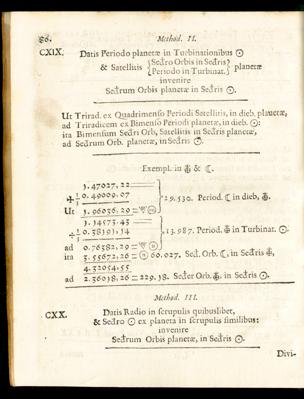 86. Method. II.
CXIX. Datis Periodo planetæ in Turbinationibus ☉
& Satellitis {Sedro Orbis in Sedris
Periodo in Turbinat.} planetæ
invenire
Sedrum Orbis planetæ in Sedris ☉.
Ut Triead. ex Quadrimenso Periodi Satellitis, in dieb. planetæ,
ad Triradicem ex Bimenso Periodi planetæ, in dieb ☉:
ita Bimensum Sedri Orb, Satellitis in Sedris planetæ,
ad Sedrum Orb. planetæ, in Sedris ☉.
Exempl. in & ☾.
1. 47027, 22
÷ 1/3 0. 49009, 07 29.530. Period. ☾ in dieb,
Ut 1. 96036, 29
1. 14573, 43
÷ 1/3 0. 38191, 14 13.987. Period. in Turbinat. ☉
ad 0. 76382, 29
ita 3. 55672, 26 60.027. Sed. Orb. ☾, in Sedris
4. 32054, 55
ad 2. 36018, 26 = 229. 18. Seder Orb. in Sedris ☉.
Method. III.
CXX. Datis Radio in scrupulis quibuslibet,
& Sedro ☉ ex planeta in scrupulis similibus:
invenire
Sedrum Orbis planetæ, in Sedris ☉.
Divi-